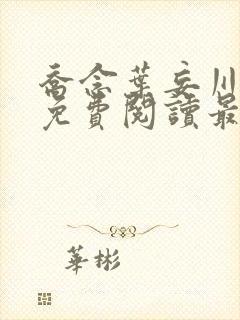 喬念葉妄川
免費閱讀最
華彬